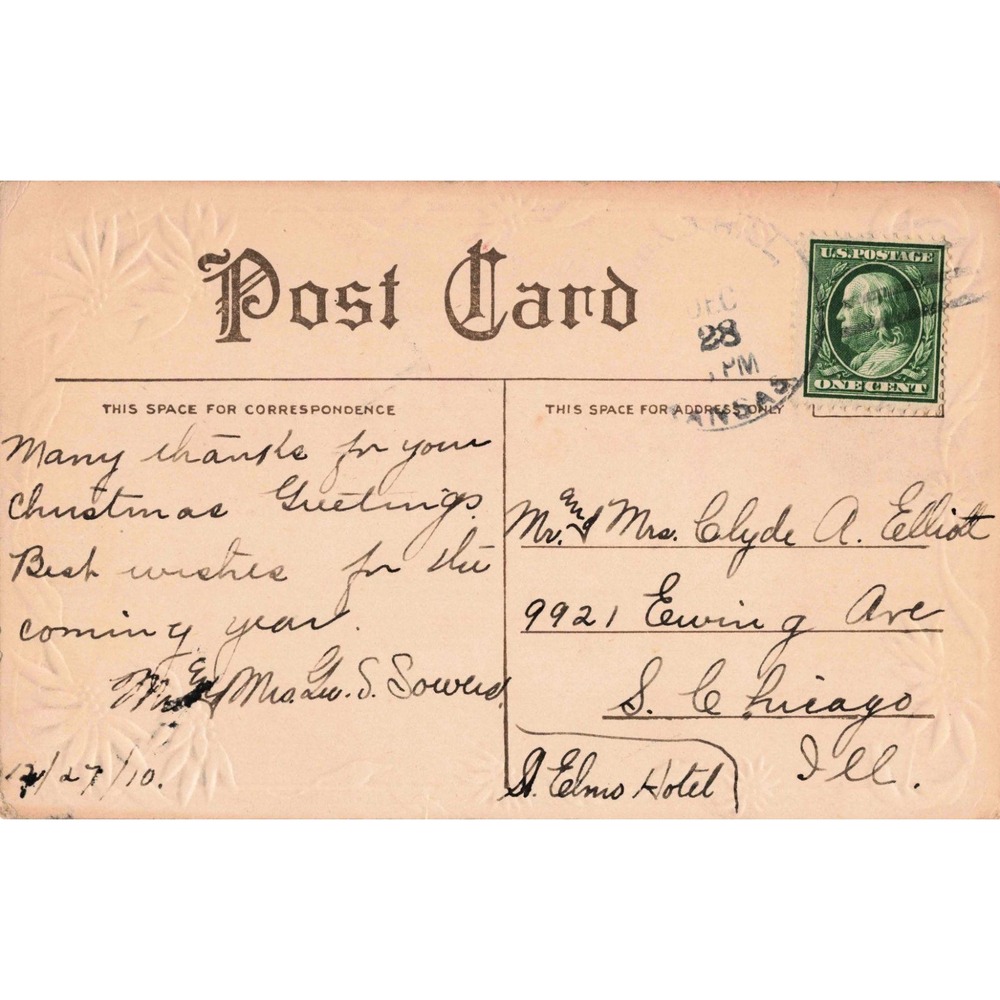 Post Card
U.S. POSTAGE
ONE CENT
DEC
28
PM
ANSAS
THIS SPACE FOR CORRESPONDENCE
THIS SPACE FOR ADDRESS ONLY
Many thanks for your
Christmas Greetings.
Best wishes for the
coming year.
Mrs. Geo. S. Sowers
12/27/10.
Mr. and Mrs. Clyde A. Elliott
9921 Ewing Ave
S. Chicago
Ill.
St. Elmo Hotel